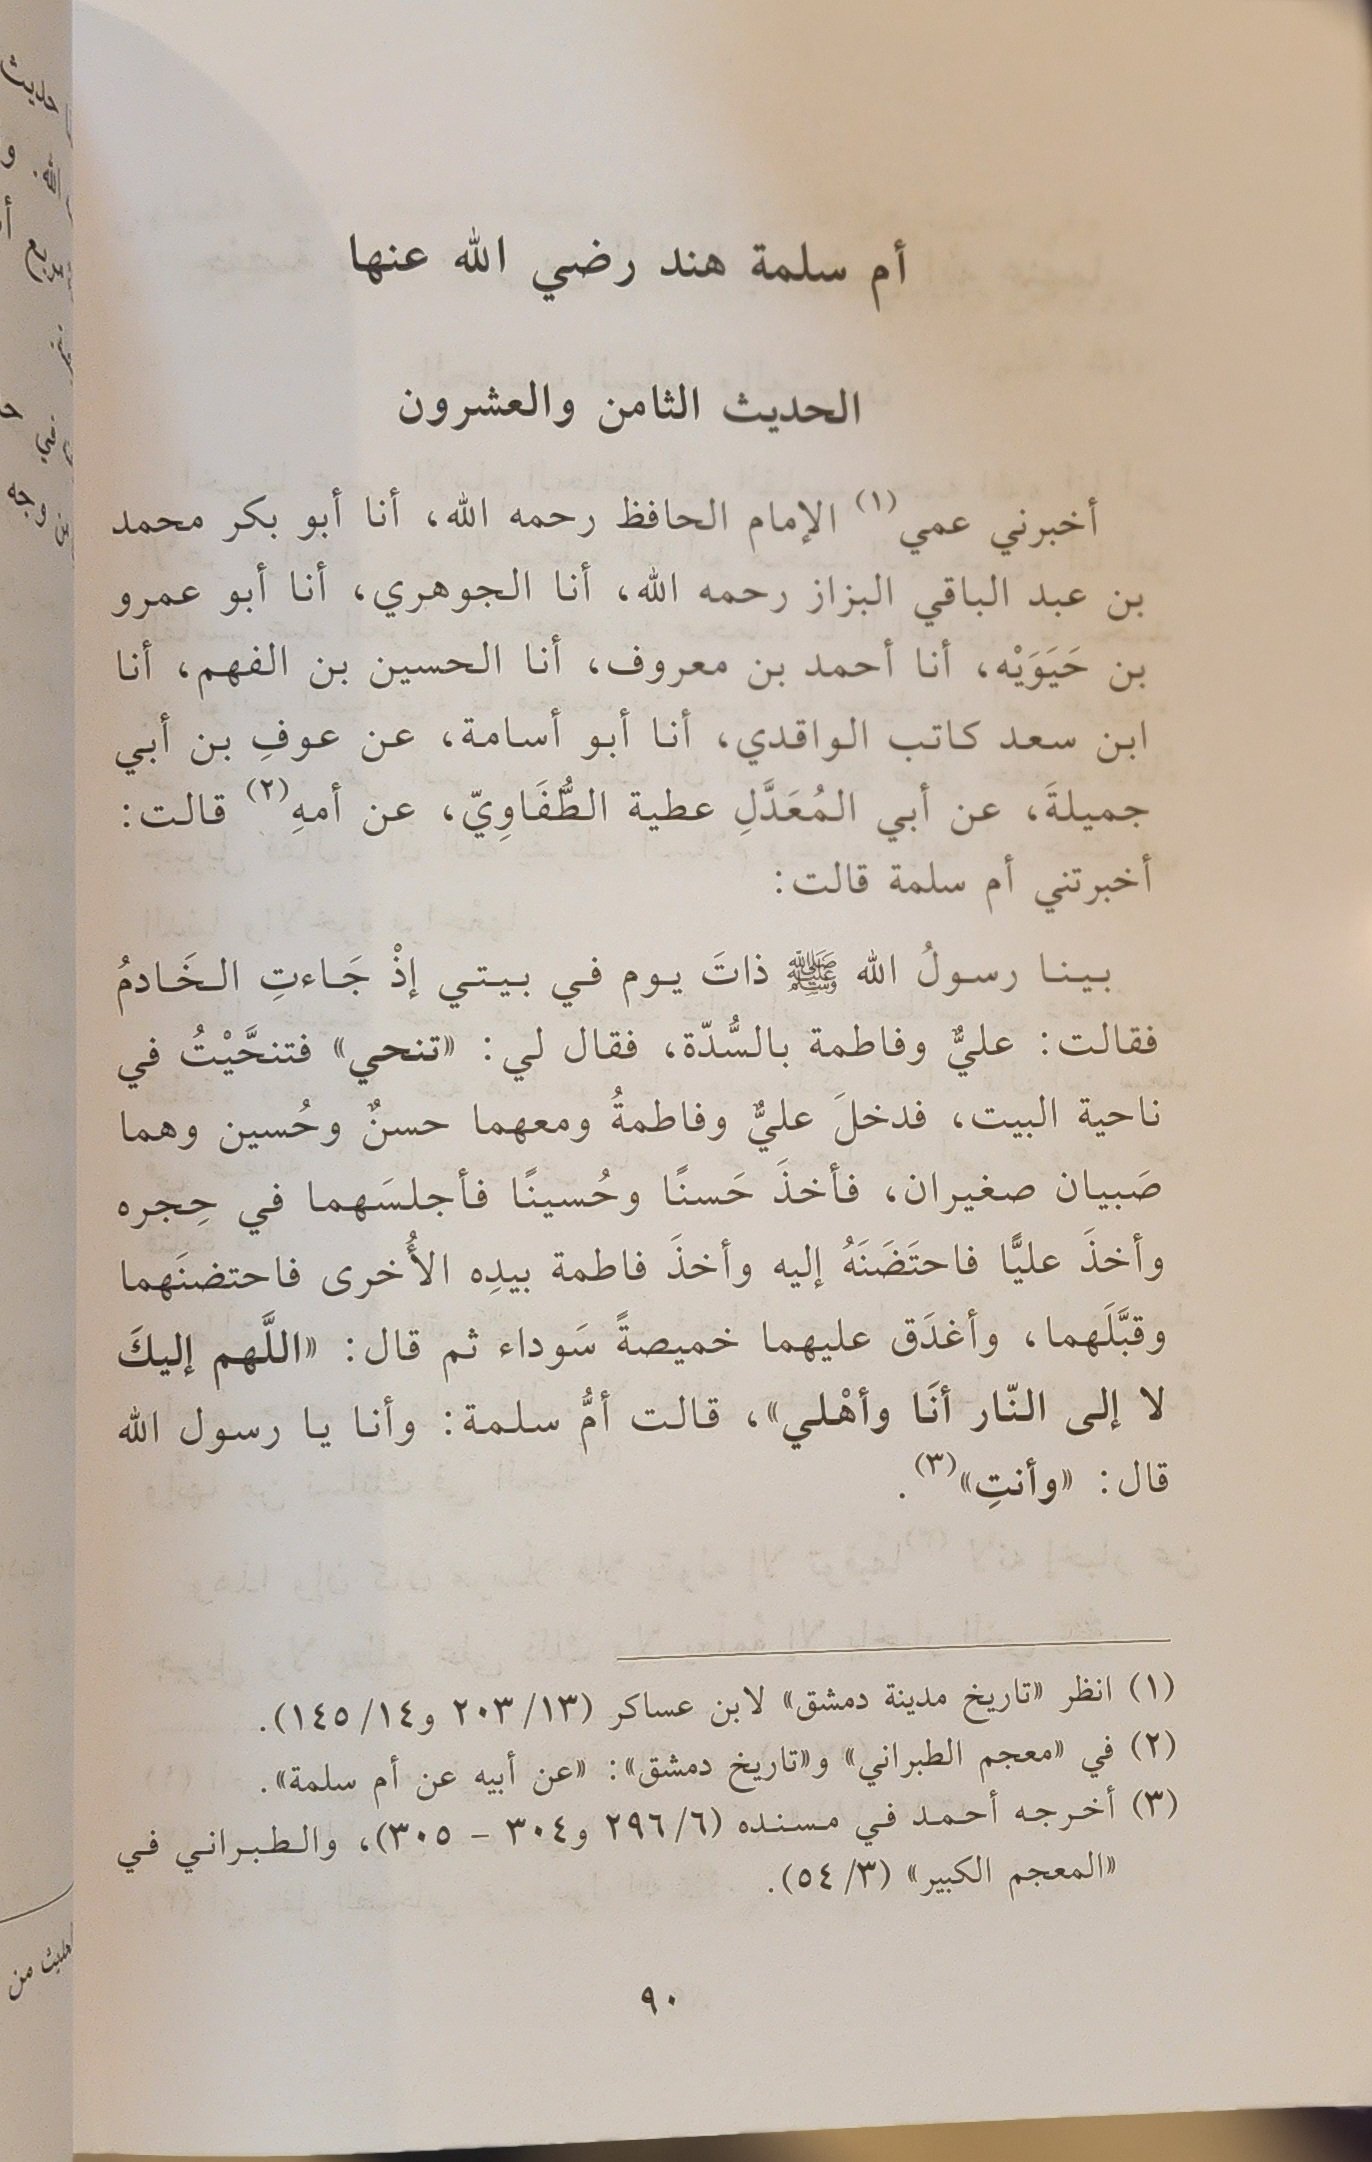 أم سلمة هند رضي الله عنها
الحديث الثامن والعشرون
أخبرني عمي(١) الإمام الحافظ رحمه الله، أنا أبو بكر محمد
بن عبد الباقي البزاز رحمه الله، أنا الجوهري، أنا أبو عمرو
بن حَيَوَيْه، أنا أحمد بن معروف، أنا الحسين بن الفهم، أنا
ابن سعد كاتب الواقدي، أنا أبو أسامة، عن عوفِ بن أبي
جميلةَ، عن أبي المُعَدَّلِ عطية الطُّفَاوِيّ، عن أمهِ(٢) قالت:
أخبرتني أم سلمة قالت:
بينا رسولُ الله ﷺ ذاتَ يوم في بيتي إذْ جَاءتِ الخَادمُ
فقالت: عليٌّ وفاطمة بالسُّدّة، فقال لي: «تنحي» فتنحَّيْتُ في
ناحية البيت، فدخلَ عليٌّ وفاطمةُ ومعهما حسنٌ وحُسين وهما
صَبيان صغيران، فأخذَ حَسنًا وحُسينًا فأجلسَهما في حِجره
وأخذَ عليًّا فاحتَضَنَهُ إليه وأخذَ فاطمة بيدِه الأُخرى فاحتضنَهما
وقبَّلَهما، وأغدَق عليهما خميصةً سَوداء ثم قال: «اللَّهم إليكَ
لا إلى النّار أنَا وأهْلي»، قالت أمُّ سلمة: وأنا يا رسول الله
قال: «وأنتِ»(٣).
(١) انظر «تاريخ مدينة دمشق» لابن عساكر (١٣/ ٢٠٣ و١٤/ ١٤٥).
(٢) في «معجم الطبراني» و«تاريخ دمشق»: «عن أبيه عن أم سلمة».
(٣) أخرجه أحمد في مسنده (٦/ ٢٩٦ و٣٠٤ - ٣٠٥)، والطبراني في
«المعجم الكبير» (٣/ ٥٤).
٩٠